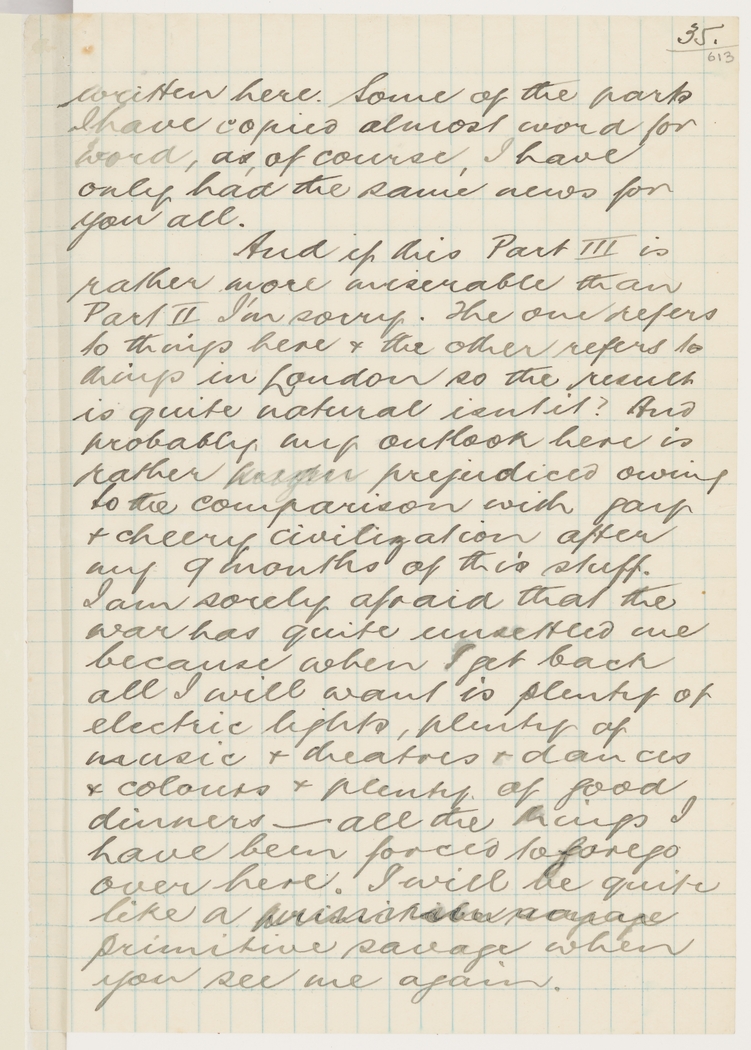 35.
613
written here. Some of the parts
I have copied almost word for
word, as, of course, I have
only had the same news for
you all.
And if this Part III is
rather more miserable than
Part II I'm sorry. The one refers
to things here & the other refers to
things in London so the result
is quite natural isn't it? And
probably my outlook here is
rather prejudiced owing
to the comparison with gay
& cheery civilization after
my 9 months of this stuff.
I am sorely afraid that the
war has quite unsettled me
because when I get back
all I will want is plenty of
electric lights, plenty of
music & theatres & dances
& colours & plenty of good
dinners — all the things I
have been forced to forego
over here. I will be quite
like a
primitive savage when
you see me again.